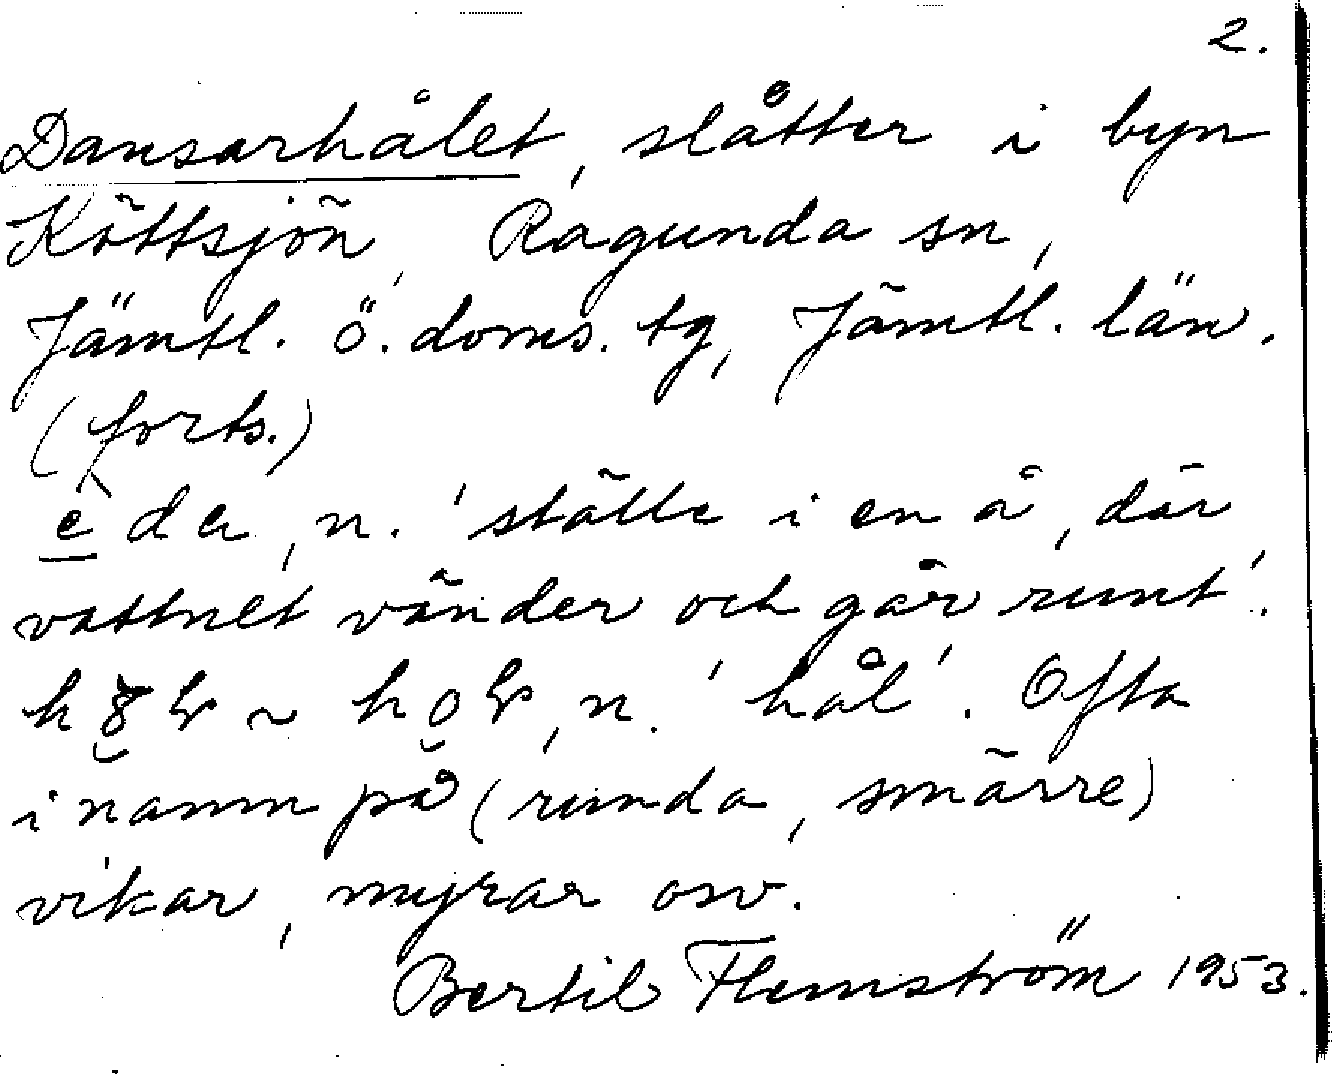 2.
Dansarhålet, slåtter i byn
Köttsjön, Ragunda sn,
Jämtl. ö. doms. tg, Jämtl. län.
(forts.)
da, n. 'ställe i en å, där
vattnet vänder och går runt'.
~ n. 'hål'. Ofta
i namn på (runda, smärre)
vikar, myrar osv.
Bertil Flemström 1953.